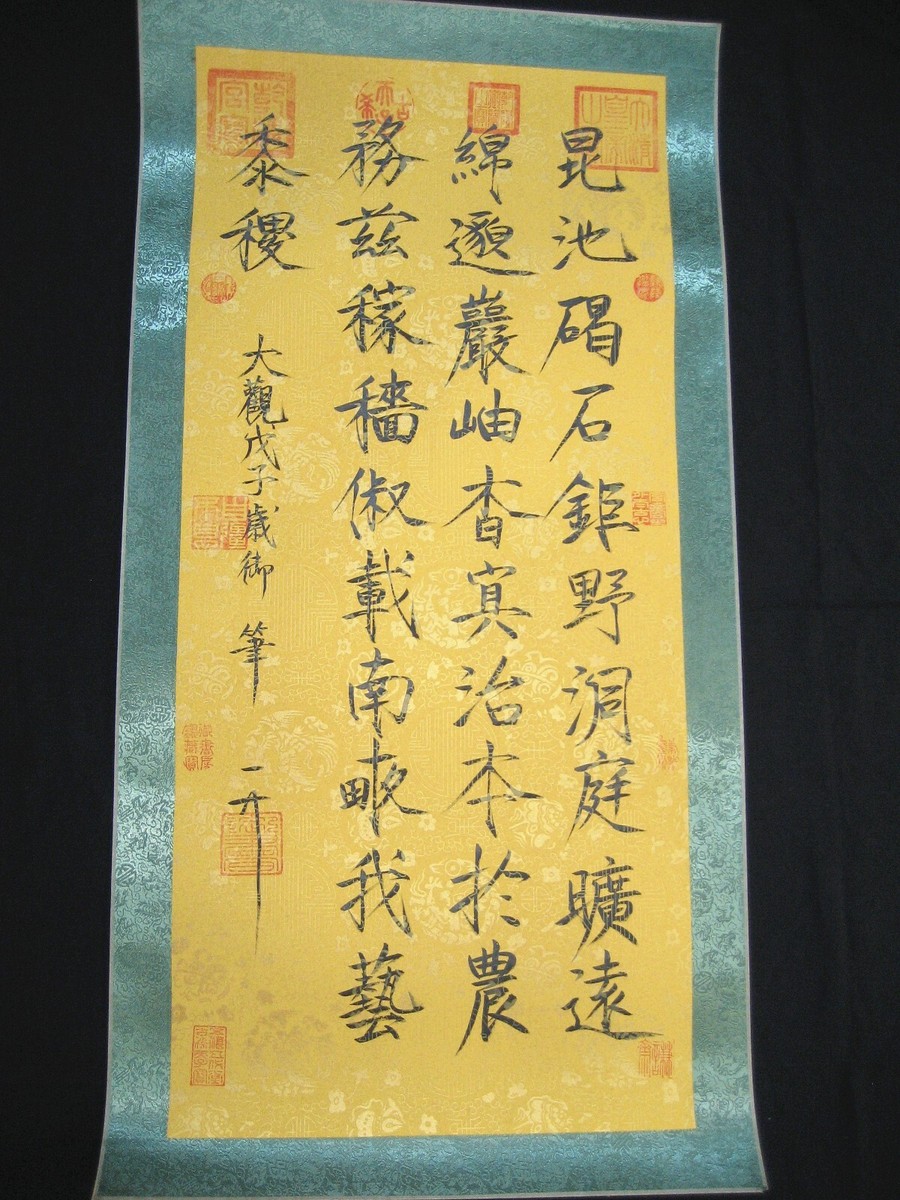 昆池碣石鉅野洞庭曠遠
綿邈巖岫杳冥治本於農
務茲稼穡俶載南畝我藝
黍稷
大觀戊子歲御筆